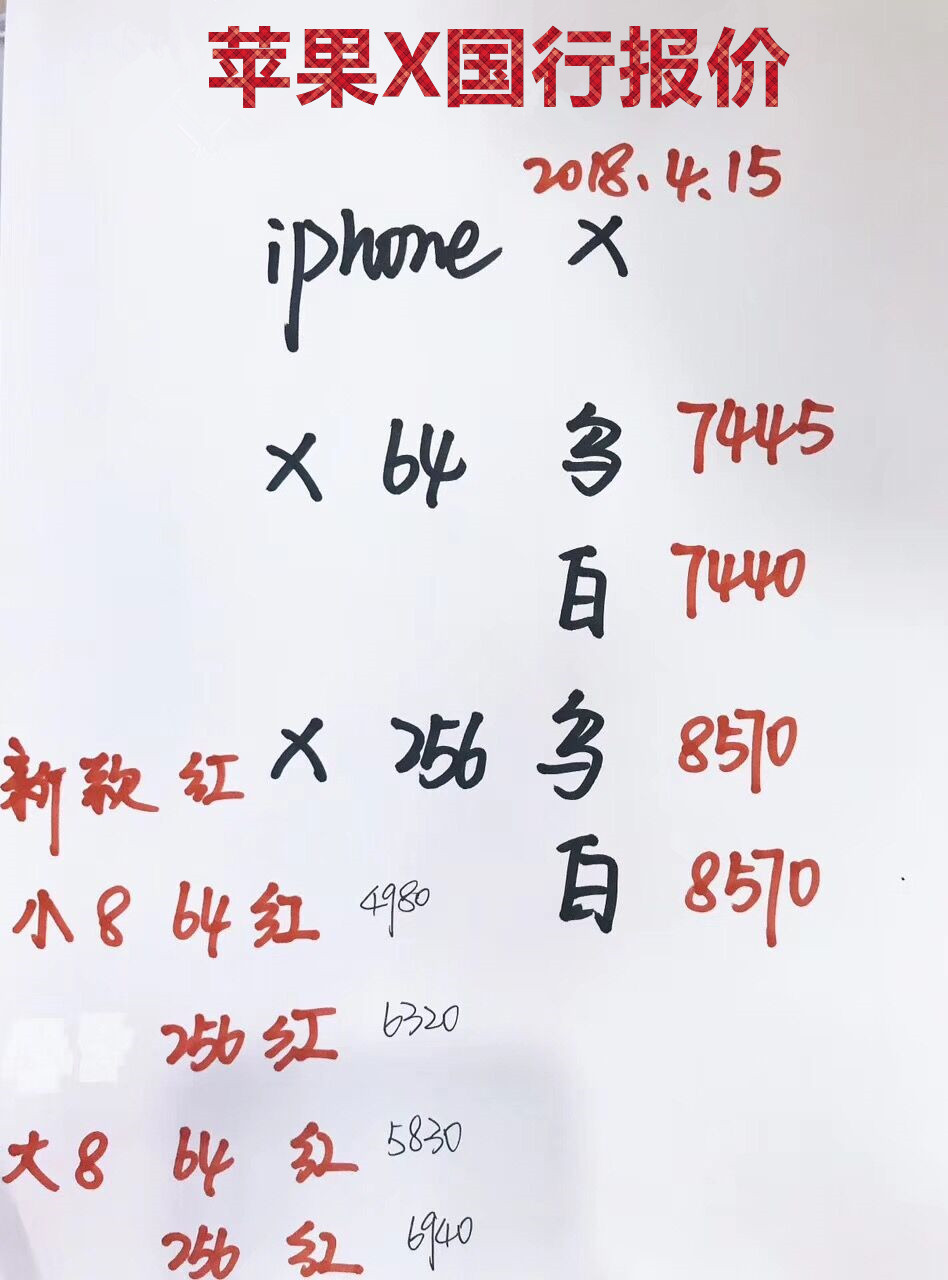 苹果X国行报价
2018.4.15
iphone X
X 64 乌 7445
白 7440
X 256 乌 8570
新款 红
白 8570
小8 64 红 4980
256 红 6320
大8 64 红 5830
256 红 6940